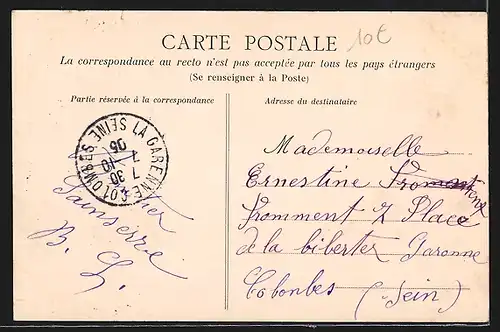 CARTE POSTALE
10€
La correspondance au recto n'est pas acceptée par tous les pays étrangers
(Se renseigner à la Poste)
Partie réservée à la correspondance
Adresse du destinataire
LA GARENNE-COLOMBES SEINE
7 30
7 -10
05
Sainserre
B. L.
Mademoiselle
Ernestine
Fromment 7 Place
de la biberter Garonne
Colonbes (Sein)